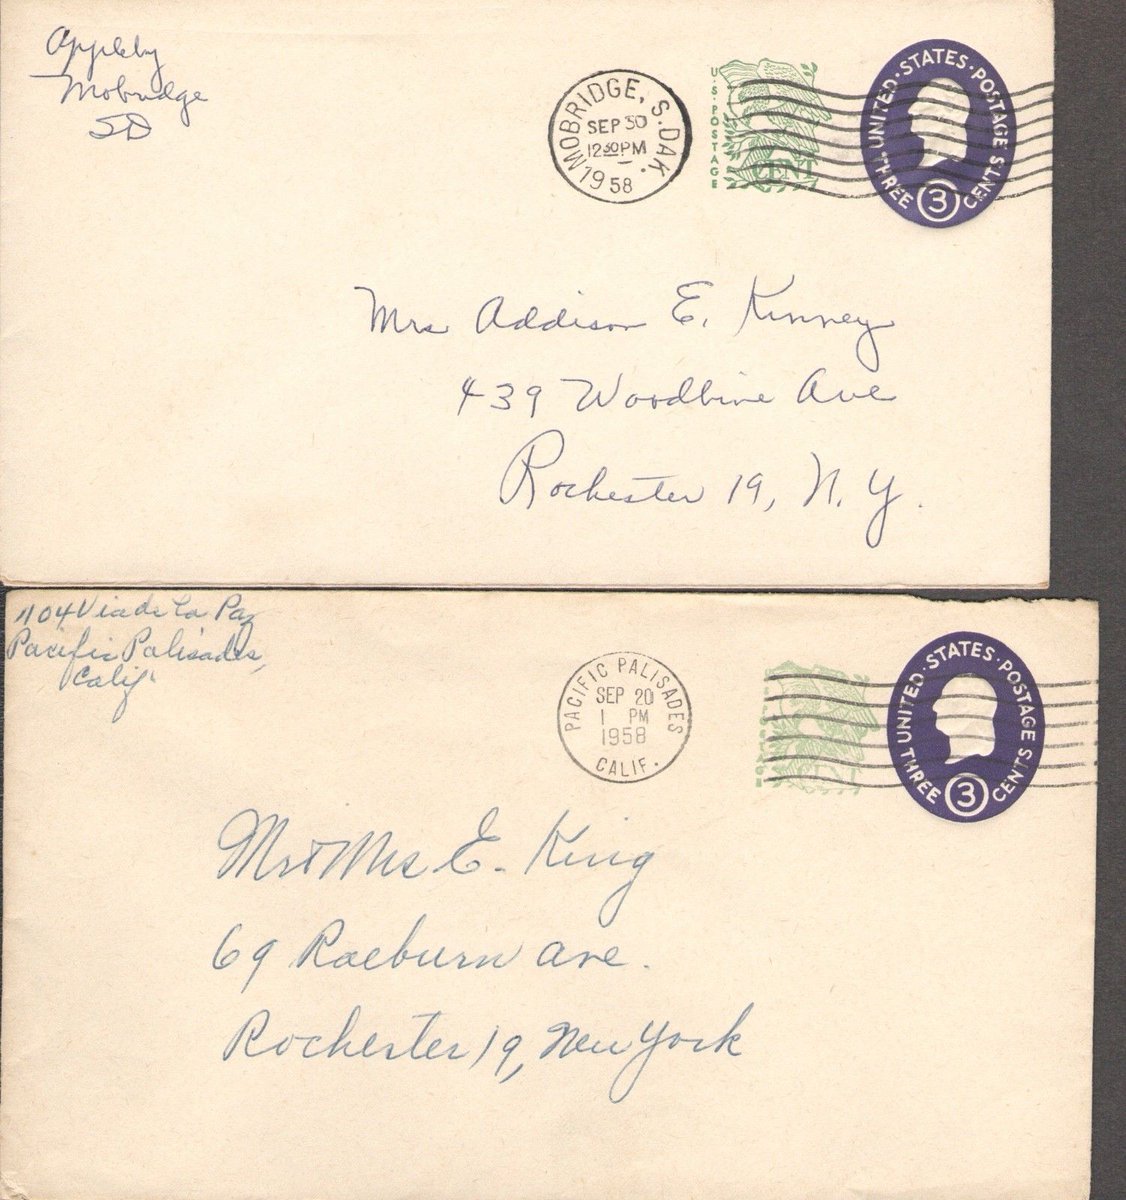 Appleby
Mobridge
SD
MOBRIDGE, S. DAK.
SEP 30
12 30 PM
1958
U.S. POSTAGE
CENT
UNITED · STATES · POSTAGE
THREE 3 CENTS
Mrs Addison E. Kinney
439 Woodbine Ave
Rochester 19, N. Y.
1104 Via de La Paz
Pacific Palisades,
Calif
PACIFIC PALISADES
SEP 20
1 PM
1958
CALIF.
UNITED · STATES · POSTAGE
THREE 3 CENTS
Mr & Mrs E. King
69 Raeburn Ave.
Rochester 19, New York